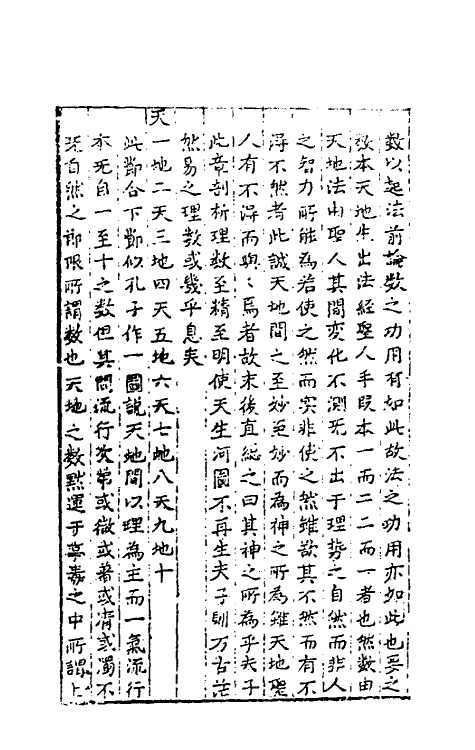 數以起法前論数之功用有如此故法之功用亦如此也要之
数本天地生出法經聖人手段本一而二二而一者也然数由
天地法由聖人其間变化不測旡不出于理势之自然而非人
之智力所能為若使之然而实非使之然雖欲其不然而有不
淂不然者此誠天地間之至妙至妙而為神之所為雖天地聖
人有不淂而與〻焉者故末後直緫之曰其神之所為乎夫子
此章剖析理数至精至明使天生河圖不再生夫子則万古法
然易之理数或幾乎息矣
天一地二天三地四天五地六天七地八天九地十
此節合下節似孔子作一圖說天地間以理為主而一氣流行
本旡自一至十之数但其間流行次第或微或著或清或濁不
旡自然之節限所謂数也天地之数默運于冥之中所謂上